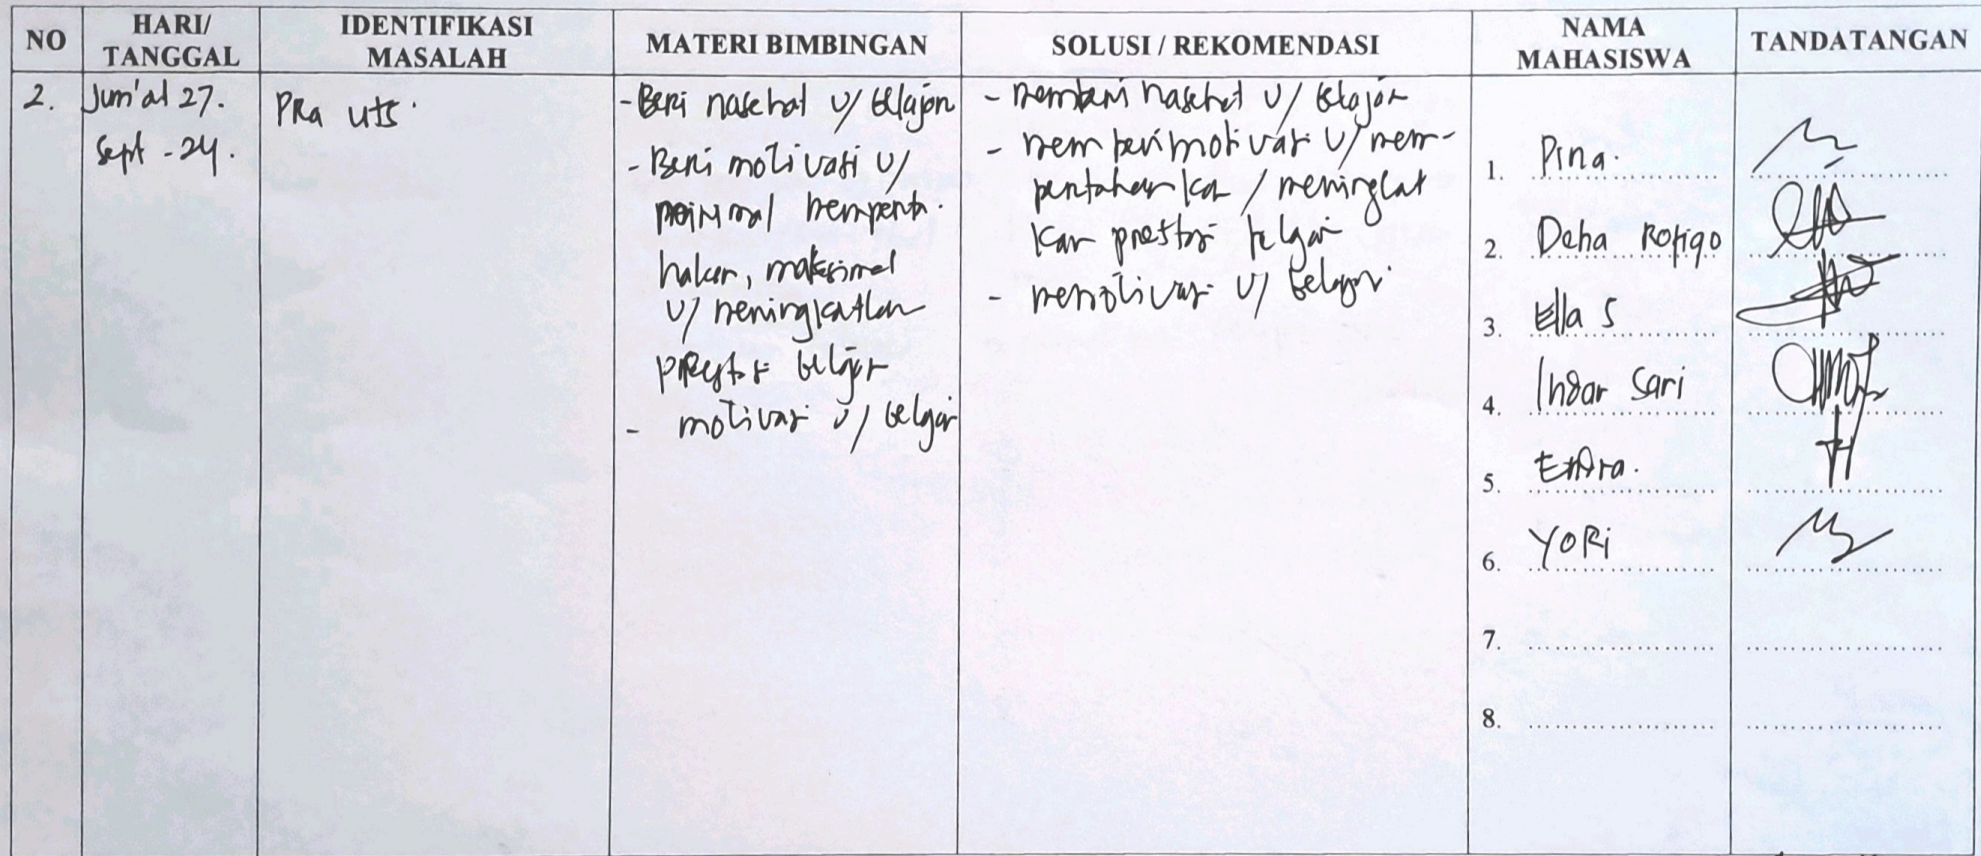 NO
HARI/
TANGGAL
IDENTIFIKASI
MASALAH
MATERI BIMBINGAN
SOLUSI / REKOMENDASI
NAMA
MAHASISWA
TANDATANGAN
2.
Jum'at 27.
Sept - 24.
PRa UTS.
- Beri nasehat u/ belajar
- Beri motivasi u/
hakan, maksimal
u/ meningkatkan
belajar
- motivasi u/ belajar
- memberi nasehat u/ belajar
- memberi motivasi u/ mem-
pertahankan / meningkat
kan prestasi belajar
- memotivasi u/ belajar.
1. Pina.
2. Deha
3. Ella S
4. Indar Sari
5.
6. YORi
7.
8.